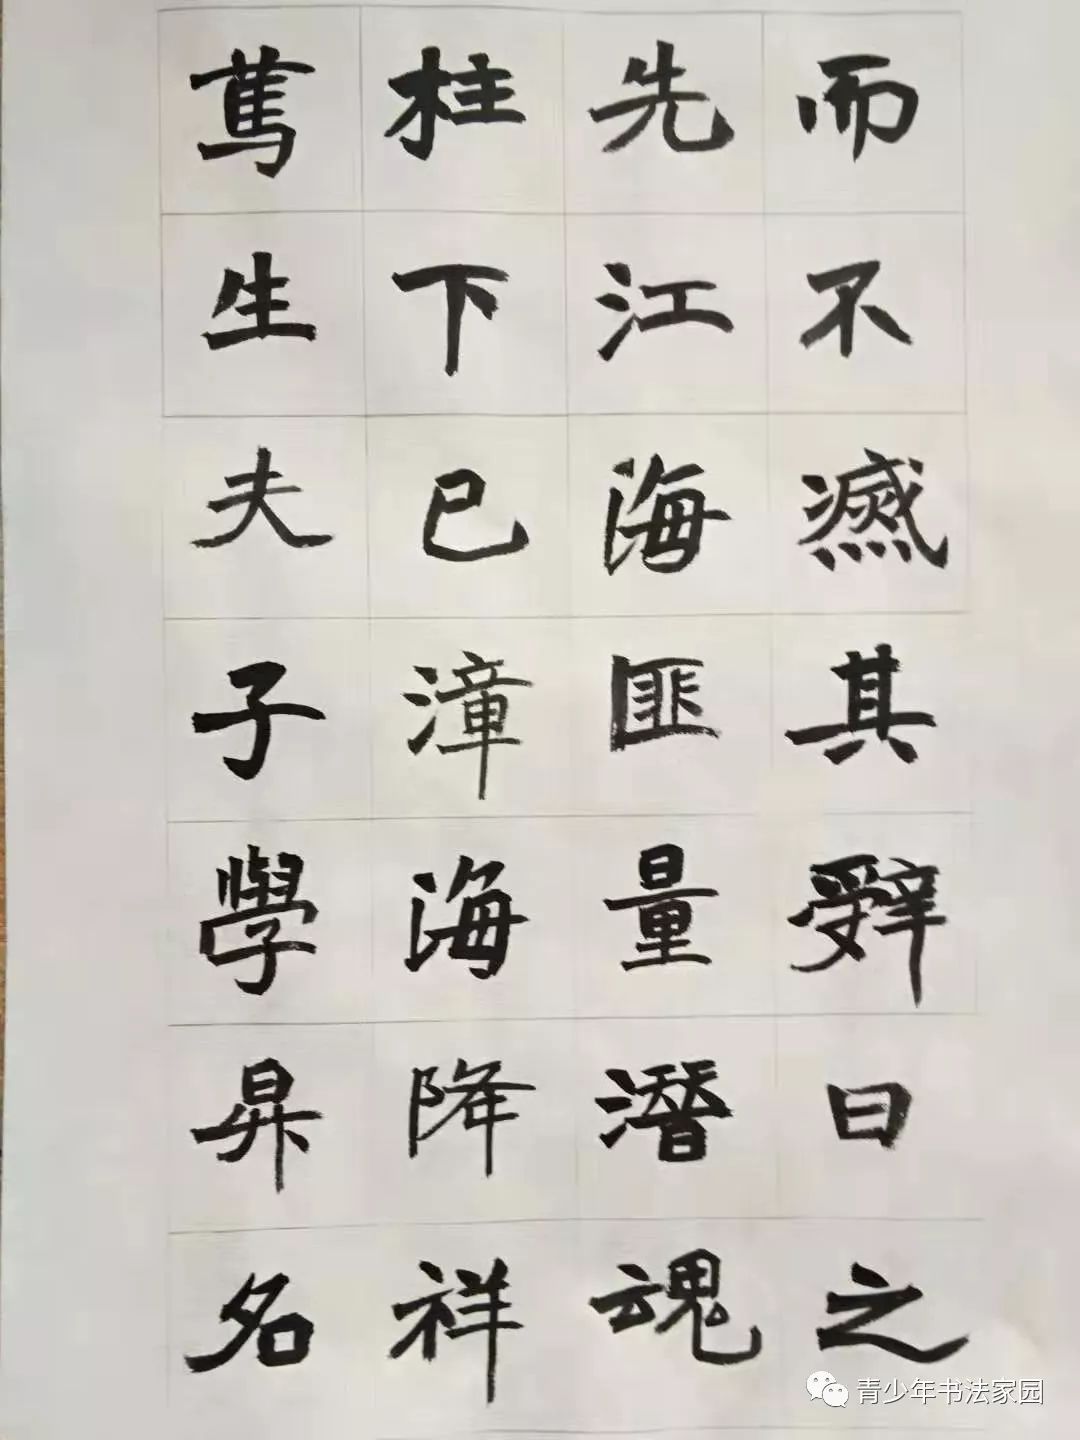 而不滅其辤曰之
先江海匪量潛魂
柱下巳漳海降祥
篤生夫子學昇名
青少年书法家园